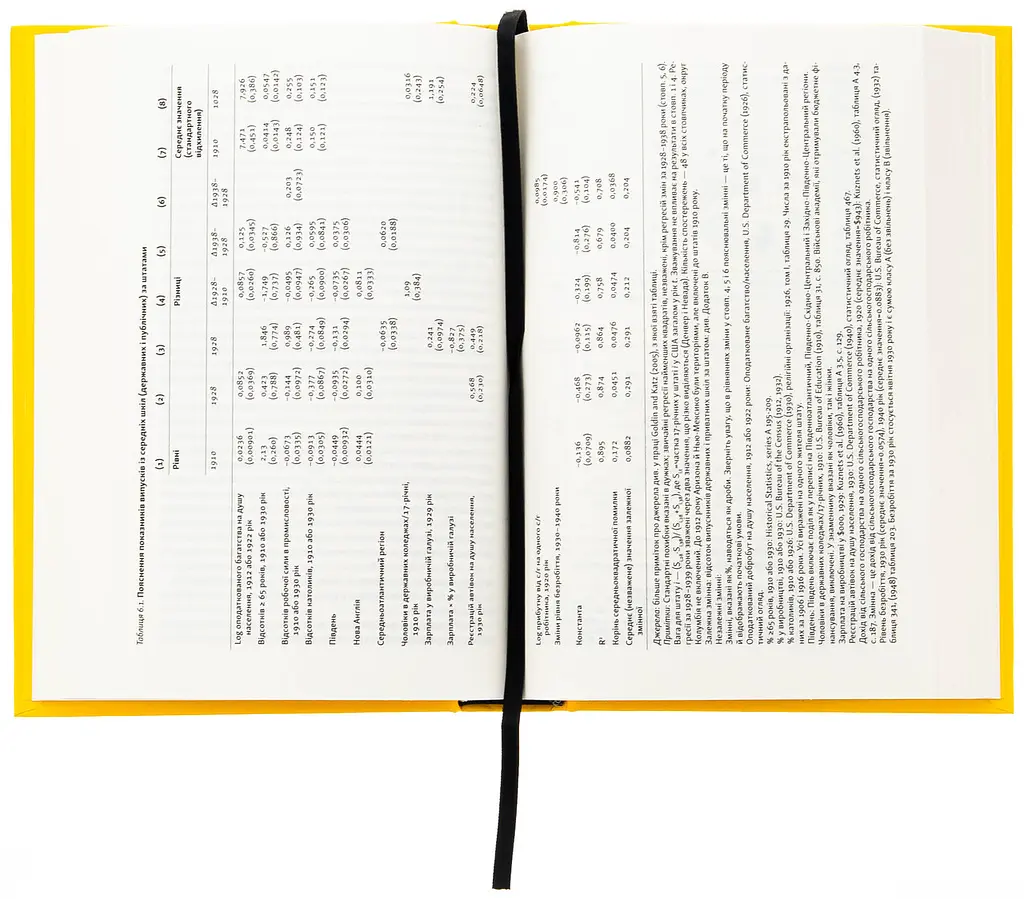 Таблиця 6.1. Пояснення показників випусків із середніх шкіл (державних і публічних) за штатами
(1) (2) (3) (4) (5) (6) (7) (8)
Рівні Різниці Середнє значення
(стандартного
відхилення)
1910 1928 1928 Δ1928–1910 Δ1938–1928 Δ1938–1928 1910 1028
Log оподаткованого багатства на душу 0,0236 0,0852 0,0857 0,125 7,471 7,926
населення, 1912 або 1922 рік (0,00901) (0,0369) (0,0260) (0,0345) (0,451) (0,386)
Відсотків ≥ 65 років, 1910 або 1930 рік 2,13 0,423 1,846 −1,749 −0,527 0,0414 0,0547
(0,260) (0,788) (0,774) (0,737) (0,866) (0,0143) (0,0142)
Відсотків робочої сили в промисловості, −0,0673 −0,144 0,989 −0,0495 0,126 0,203 0,248 0,255
1910 або 1930 рік (0,0335) (0,0972) (0,481) (0,0947) (0,934) (0,0723) (0,124) (0,103)
Відсотків католиків, 1910 або 1930 рік −0,0913 −0,377 −0,274 −0,265 0,0595 0,150 0,151
(0,0305) (0,0867) (0,0849) (0,0900) (0,0841) (0,121) (0,123)
Південь −0,0449 −0,0935 −0,131 −0,0735 0,0375
(0,00932) (0,0272) (0,0294) (0,0267) (0,0306)
Нова Англія 0,0444 0,100 0,0811
(0,0121) (0,0310) (0,0333)
Середньоатлантичний регіон −0,0635 0,0620
(0,0338) (0,0188)
Чоловіки в державних коледжах/17-річні, 1,09 0,0316
1910 рік (0,384) (0,243)
Зарплата у виробничій галузі, 1929 рік 0,241 1,191
(0,0974) (0,254)
Зарплата × % у виробничій галузі −0,827
(0,375)
Реєстрацій автівок на душу населення, 0,568 0,449 0,224
1930 рік (0,230) (0,218) (0,0648)
Log прибутку від с/г на одного с/г 0,0985
робітника, 1920 рік (0,0174)
Зміни рівня безробіття, 1930–1940 роки 0,900
(0,306)
Константа −0,136 −0,468 −0,0962 −0,324 −0,814 −0,541
(0,0709) (0,273) (0,115) (0,199) (0,276) (0,104)
R² 0,895 0,874 0,864 0,758 0,679 0,708
Корінь середньоквадратичної помилки 0,172 0,0451 0,0476 0,0474 0,0400 0,0368
Середнє (незважене) значення залежної 0,0882 0,291 0,291 0,212 0,204 0,204
змінної
Джерела: більше приміток про джерела див. у праці Goldin and Katz (2005), з якої взяті таблиці.
Примітки: Стандартні похибки вказані в дужках; звичайні регресії найменших квадратів, незважені, крім регресій змін за 1928–1938 роки (стовп. 5, 6).
Вага для штату i — частка 17-річних у штаті i у США загалом у рік t. Зважування не впливає на результати в стовп. 1 і 4. Ре-
гресії за 1928–1939 роки зважені через два значення, що різко виділяються (Делавер і Невада). Кількість спостережень — 48 у всіх стовпчиках, округ
Колумбія не включений. До 1912 року Аризона й Нью-Мексико були територіями, але включені до штатів 1910 року.
Залежна змінна: відсоток випускників державних і приватних шкіл за штатом: див. Додаток В.
Незалежні змінні:
Змінні, вказані як %, наводяться як дроби. Зверніть увагу, що в рівняннях зміни у стовп. 4, 5 і 6 пояснювальні змінні — це ті, що на початку періоду
й відображають початкові умови.
Оподаткований добробут на душу населення, 1912 або 1922 роки: Оподатковане багатство/населення, U.S. Department of Commerce (1926), статис-
тичний огляд.
% ≥65 років, 1910 або 1930: Historical Statistics, series A 195-209.
% у виробництві, 1910 або 1930: U.S. Bureau of the Census (1912, 1932).
% католиків, 1910 або 1926: U.S. Department of Commerce (1930), релігійні організації: 1926, том I, таблиця 29. Числа за 1910 рік екстрапольовані з да-
них за 1906 і 1916 роки. Усі виражені на одного жителя штату.
Південь: Південь включає поділ як у переписі на Південноатлантичний, Південно-Східно-Центральний і Західно-Південно-Центральний регіони.
Чоловіки в державних коледжах/17-річних, 1910: U.S. Bureau of Education (1910), таблиця 31, с. 850. Військові академії, які отримували бюджетне фі-
нансування, виключені. У знаменнику вказані як чоловіки, так і жінки.
Зарплата на виробництві у $000, 1929: Kuznets et al. (1960), таблиця A 3.5, с. 129.
Реєстрацій автівок на душу населення, 1930: U.S. Department of Commerce (1940), статистичний огляд, таблиця 467.
Дохід від сільського господарства на одного сільськогосподарського робітника, 1920 (середнє значення=$943): Kuznets et al. (1960), таблиця A 4.3,
с. 187. Змінна — це дохід від сільського господарства на одного сільськогосподарського робітника.
Рівень безробіття, 1930 рік (середнє значення=0.0574), 1940 рік (середнє значення=0.0883): U.S. Bureau of Commerce, статистичний огляд, (1932) та-
блиця 341, (1948) таблиця 203. Безробіття за 1930 рік стосується квітня 1930 року і є сумою класу А (без звільнень) і класу В (звільнення).